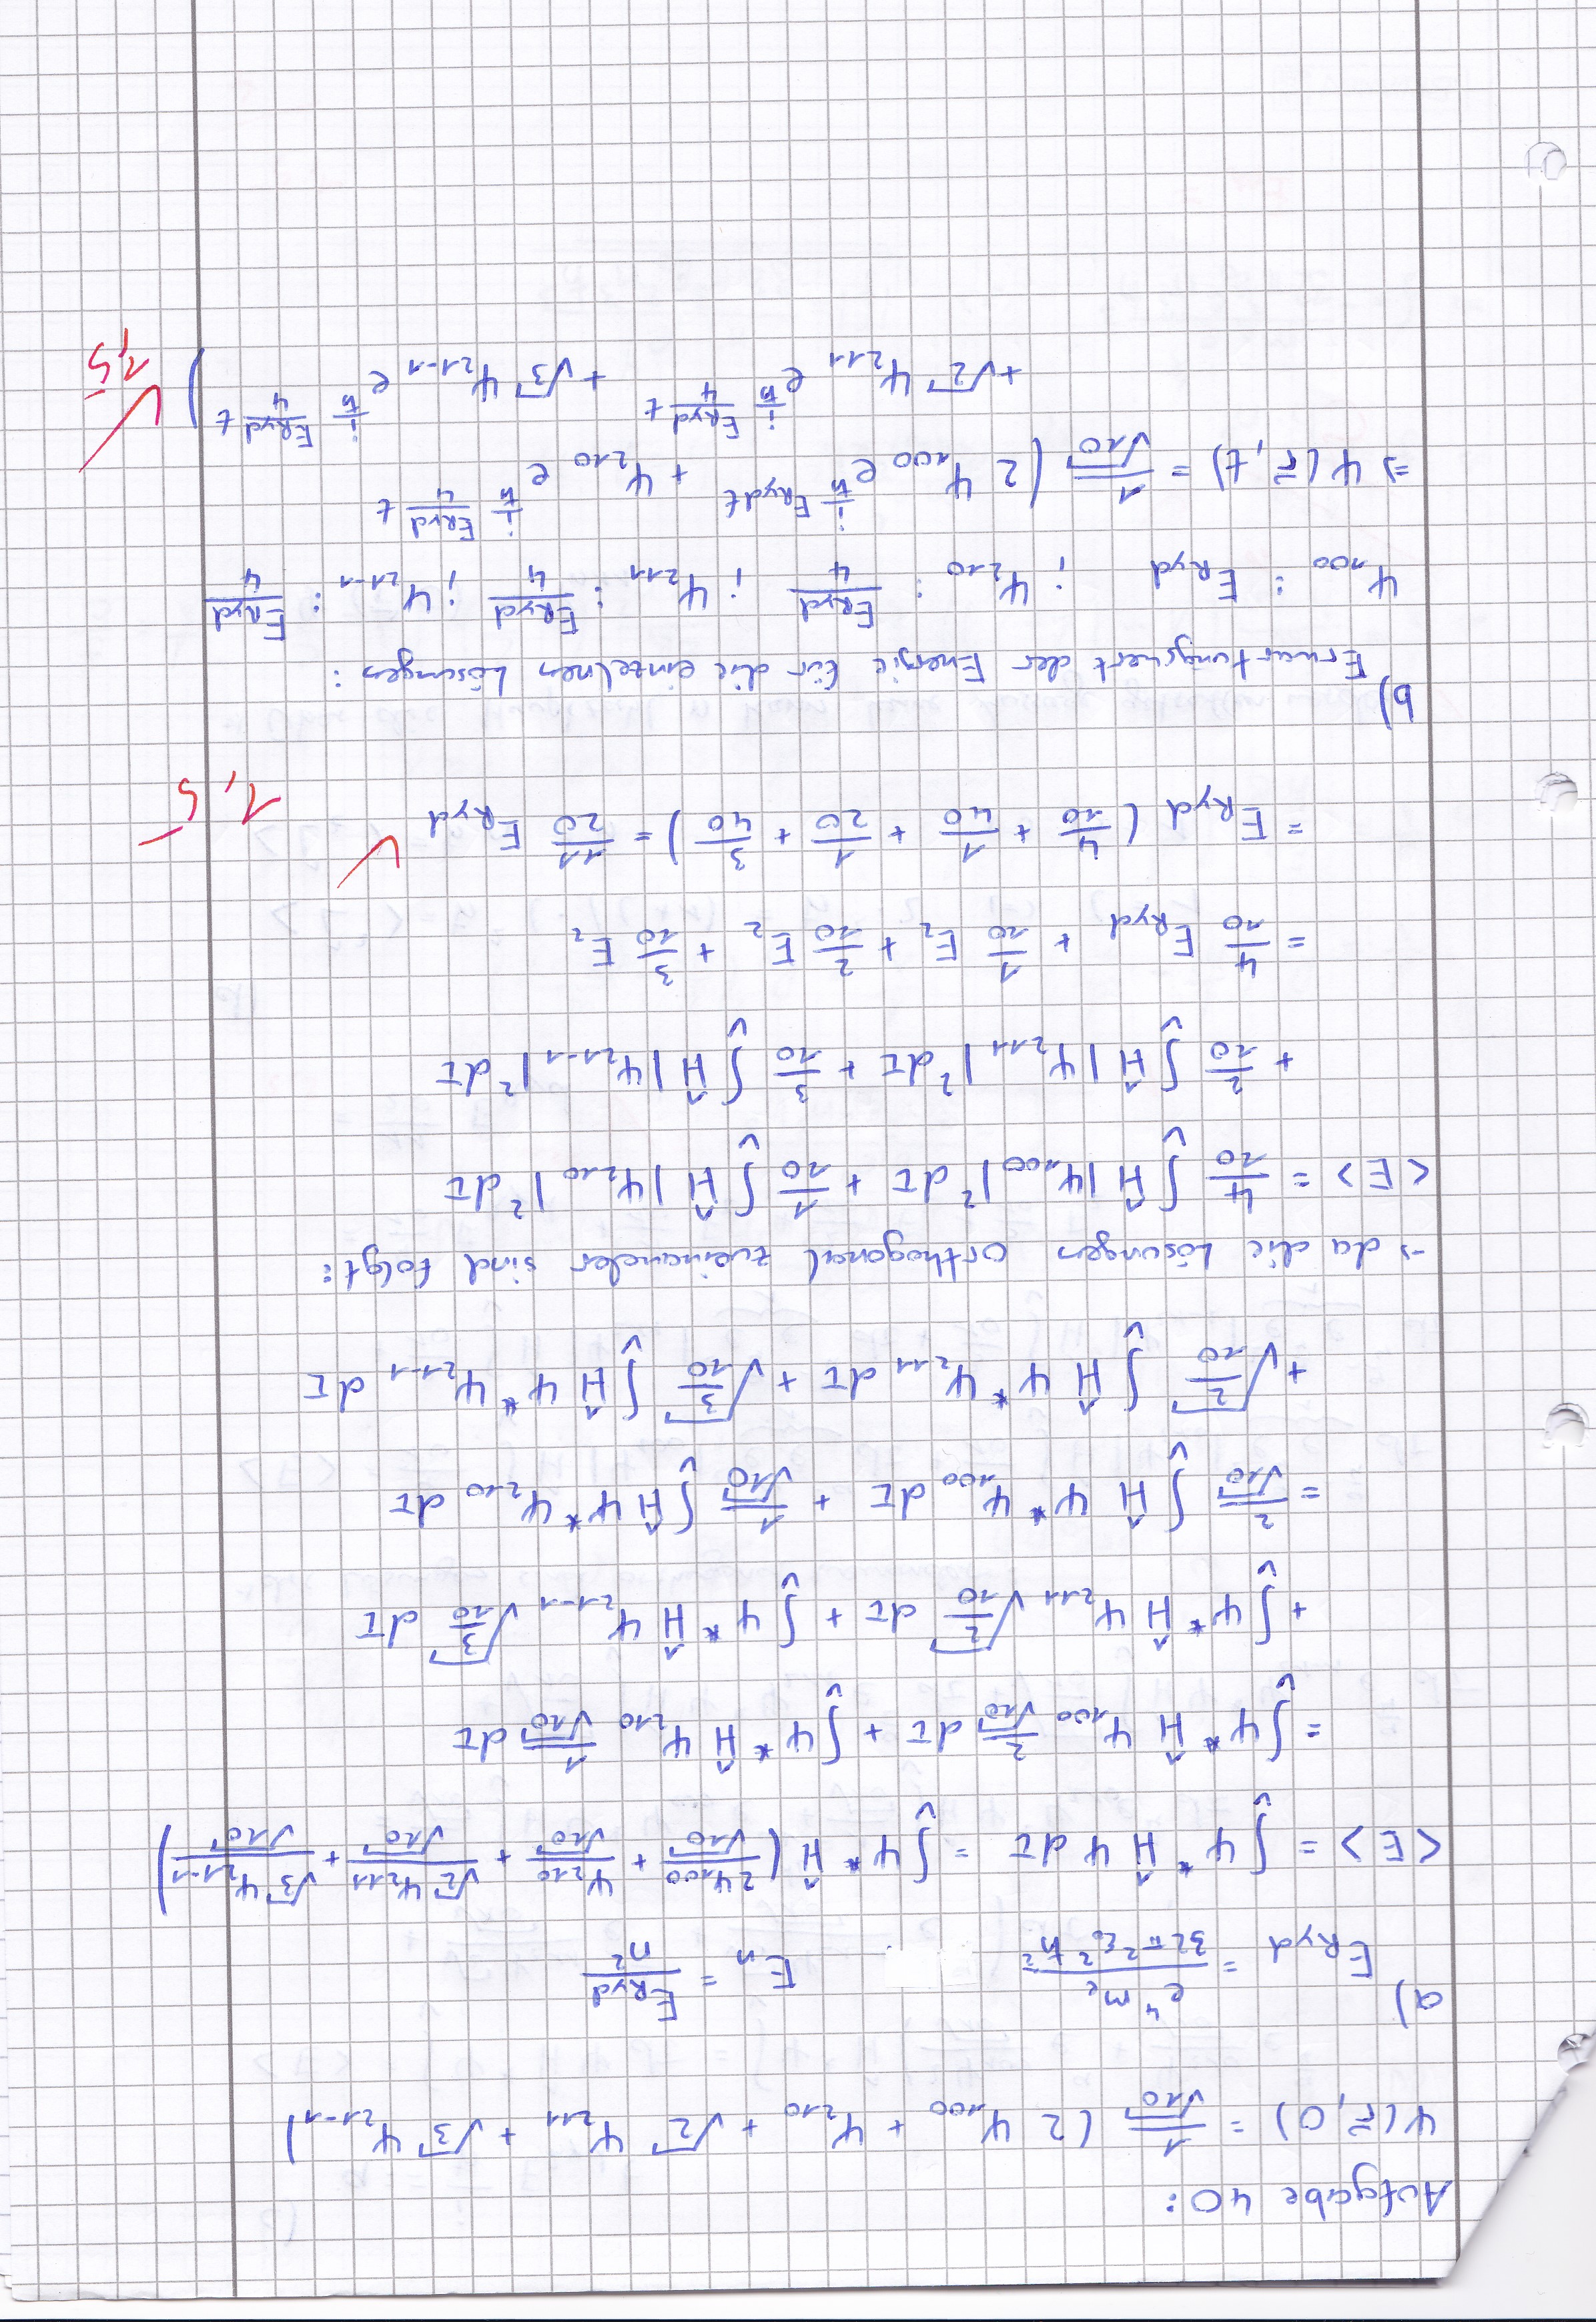 Aufgabe 40:
Ψ(r⃗,0) = 1/√10 (2 Ψ₁₀₀ + Ψ₂₁₀ + √2 Ψ₂₁₁ + √3 Ψ₂₁₋₁)
a)
E_Ryd = e⁴ mₑ / 32π²ε₀²ħ²   Eₙ = E_Ryd / n²
<E> = ∫_V Ψ* Ĥ Ψ dτ = ∫_V Ψ* Ĥ (2Ψ₁₀₀/√10 + Ψ₂₁₀/√10 + √2 Ψ₂₁₁/√10 + √3 Ψ₂₁₋₁/√10)
= ∫_V Ψ* Ĥ Ψ₁₀₀ 2/√10 dτ + ∫_V Ψ* Ĥ Ψ₂₁₀ 1/√10 dτ
+ ∫_V Ψ* Ĥ Ψ₂₁₁ √(2/10) dτ + ∫_V Ψ* Ĥ Ψ₂₁₋₁ √(3/10) dτ
= 2/√10 ∫_V Ĥ Ψ* Ψ₁₀₀ dτ + 1/√10 ∫_V Ĥ Ψ* Ψ₂₁₀ dτ
+ √(2/10) ∫_V Ĥ Ψ* Ψ₂₁₁ dτ + √(3/10) ∫_V Ĥ Ψ* Ψ₂₁₋₁ dτ
→ da die Lösungen orthogonal zueinander sind folgt:
<E> = 4/10 ∫_V Ĥ |Ψ₁₀₀|² dτ + 1/10 ∫_V Ĥ |Ψ₂₁₀|² dτ
+ 2/10 ∫_V Ĥ |Ψ₂₁₁|² dτ + 3/10 ∫_V Ĥ |Ψ₂₁₋₁|² dτ
= 4/10 E_Ryd + 1/10 E₂ + 2/10 E₂ + 3/10 E₂
= E_Ryd (4/10 + 1/40 + 1/20 + 3/40) = 11/20 E_Ryd ✓
1,5
b)
Erwartungswert der Energie für die einzelnen Lösungen:
Ψ₁₀₀ : E_Ryd ; Ψ₂₁₀ : E_Ryd/4 ; Ψ₂₁₁ : E_Ryd/4 ; Ψ₂₁₋₁ : E_Ryd/4
⇒ Ψ(r⃗,t) = 1/√10 (2 Ψ₁₀₀ e^(i/ħ E_Ryd t) + Ψ₂₁₀ e^(i/ħ E_Ryd/4 t)
+ √2 Ψ₂₁₁ e^(i/ħ E_Ryd/4 t) + √3 Ψ₂₁₋₁ e^(i/ħ E_Ryd/4 t)) ✓
1,5